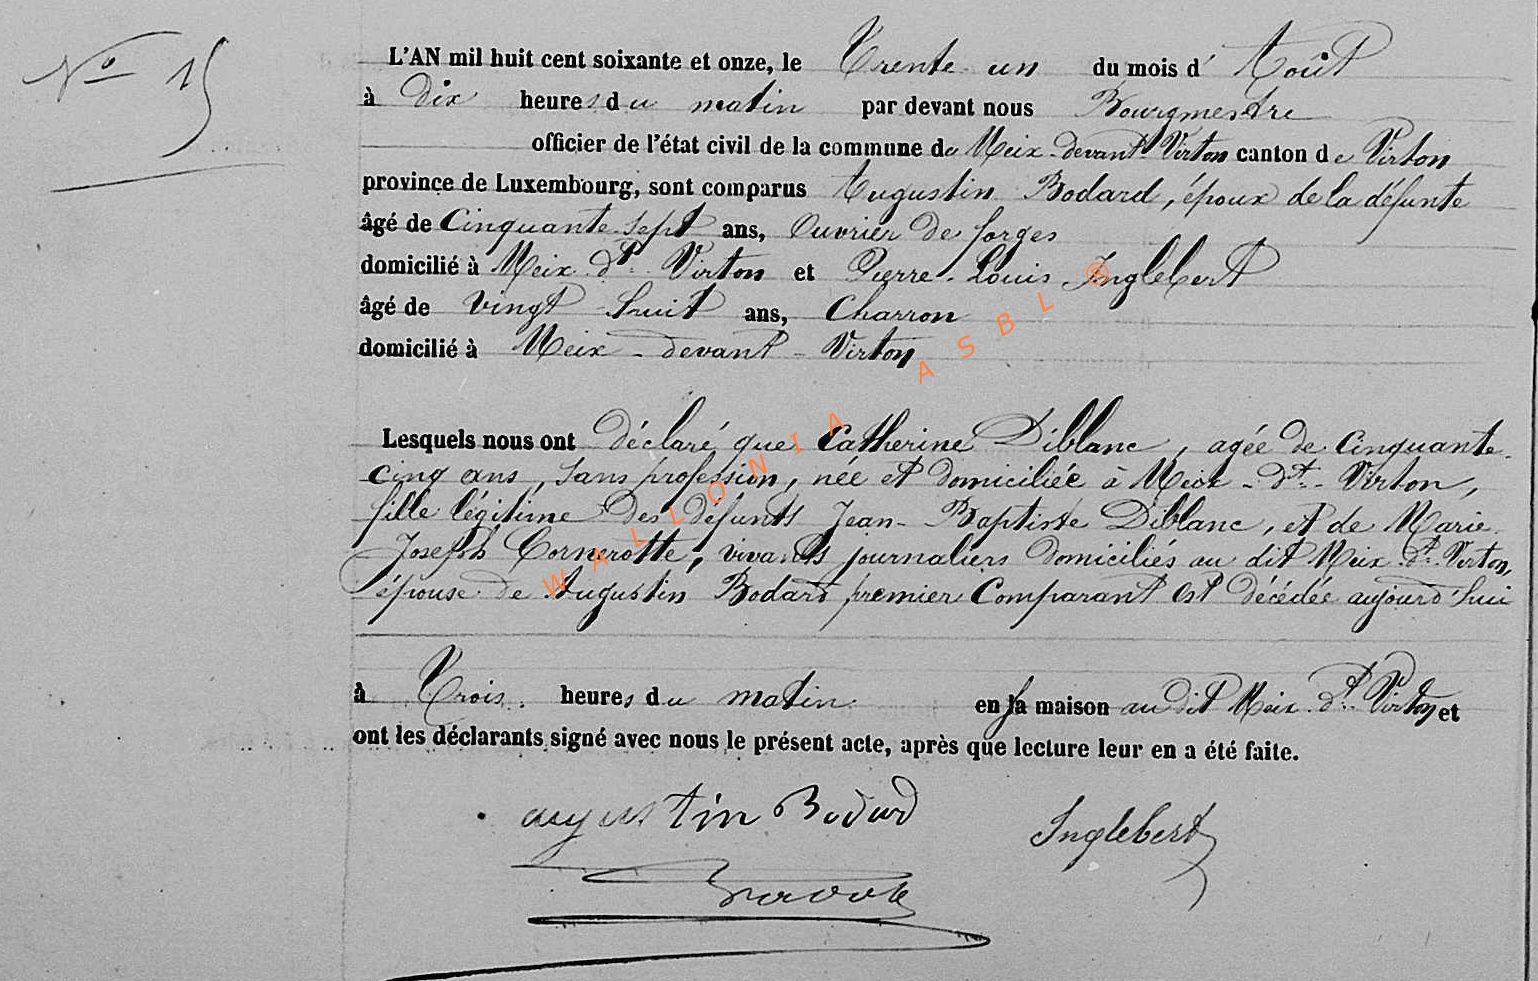 N° 15
L'AN mil huit cent soixante et onze, le Trente un du mois d' Août
à Dix heures du matin par devant nous Bourgmestre
officier de l'état civil de la commune de Meix-devant-Virton canton de Virton
province de Luxembourg, sont comparus Augustin Bodard, époux de la défunte
âgé de Cinquante sept ans, Ouvrier de forges
domicilié à Meix-dt-Virton et Pierre-Louis Inglebert
âgé de vingt huit ans, Charron
domicilié à Meix-devant-Virton
Lesquels nous ont déclaré que Catherine Diblanc, agée de cinquante
cinq ans, sans profession, née et domiciliée à Meix-dt-Virton,
fille légitime des défunts Jean-Baptiste Diblanc, et de Marie
Joseph Cornerotte, vivants journaliers domiciliés au dit Meix dt Virton,
épouse de Augustin Bodard premier Comparant est décédée aujourd'hui
à Trois heures du matin en sa maison au dit Meix dt Virton et
ont les déclarants signé avec nous le présent acte, après que lecture leur en a été faite.
augustin Bodard
Inglebert
WALLONIA ASBL ®